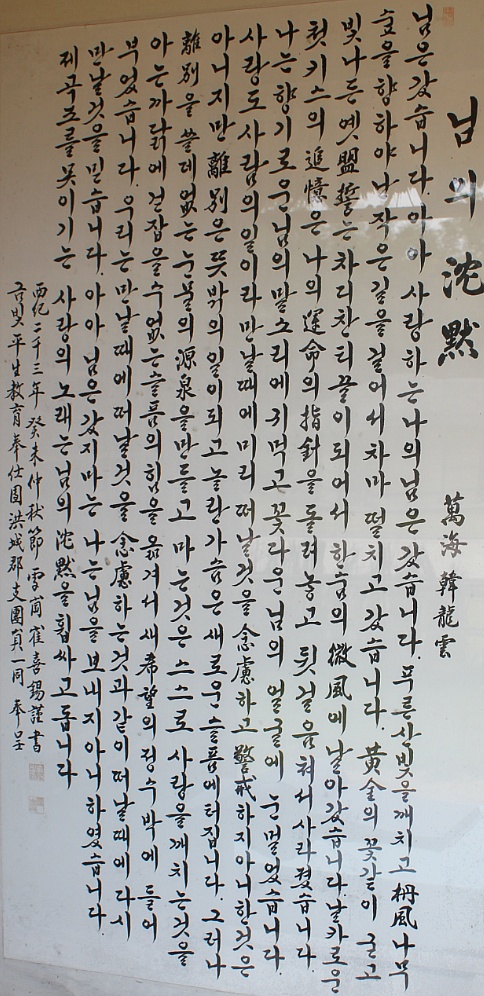 님의 沈默
萬海 韓龍雲
님은 갔습니다. 아아 사랑하는 나의 님은 갔습니다. 푸른 산빛을 깨치고 枬風나무
숲을 향하야 난 작은 길을 걸어서 차마 떨치고 갔습니다. 黃金의 꽃같이 굳고
빛나든 옛 盟誓는 차디찬 티끌이 되어서 한숨의 微風에 날아갔습니다. 날카로운
첫 키스의 追憶은 나의 運命의 指針을 돌려놓고 뒷걸음쳐서 사라졌습니다.
나는 향기로운 님의 말소리에 귀먹고 꽃다운 님의 얼굴에 눈멀었습니다.
사랑도 사람의 일이라 만날때에 미리 떠날것을 念慮하고 警戒하지 아니한것은
아니지만 離別은 뜻밖의 일이되고 놀란 가슴은 새로운 슬픔에 터집니다. 그러나
離別을 쓸데없는 눈물의 源泉을 만들고 마는것은 스스로 사랑을 깨치는것을
아는 까닭에 걷잡을 수 없는 슬픔의 힘을 옮겨서 새 希望의 정수박에 들어
부었습니다. 우리는 만날때에 떠날것을 念慮하는것과 같이 떠날때에 다시
만날것을 믿습니다. 아아 님은 갔지마는 나는 님을 보내지 아니하였습니다.
제 곡조를 못이기는 사랑의 노래는 님의 沈默을 휩싸고 돕니다
西紀二千三年 癸未仲秋節 崔喜錫 謹書
금빛平生教育奉仕團洪城郡支團員一同 奉呈